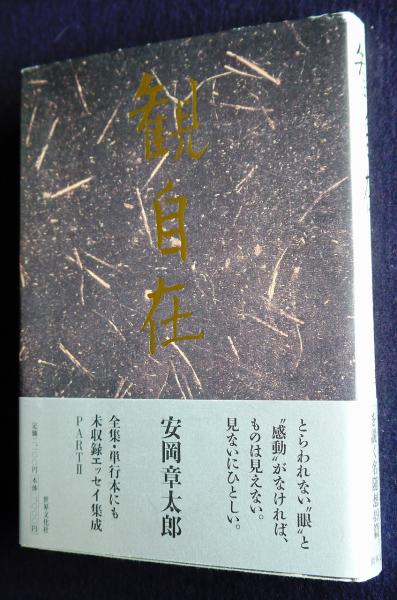 観自在
とらわれない"眼"と
"感動"がなければ、
ものは見えない。
見ないにひとしい。
安岡章太郎
全集・単行本にも
未収録エッセイ集成
PARTⅡ
世界文化社